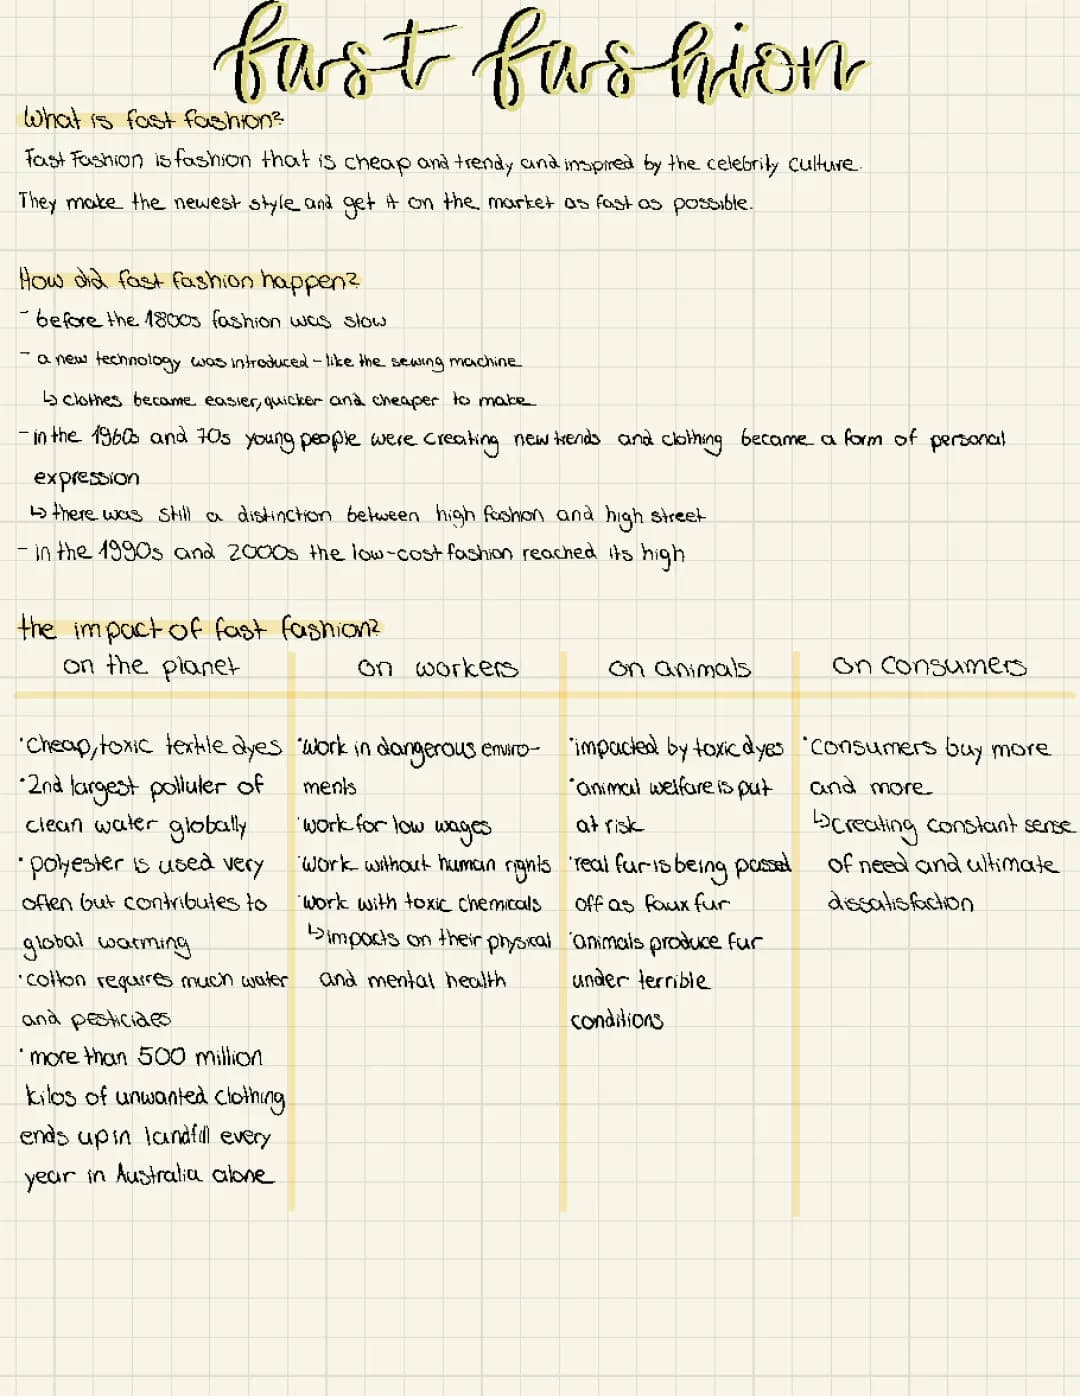 fast fashion
What is fast fashion?
Fast Fashion is fashion that is cheap and trendy and inspired by the celebrity culture.
They make the newest style and get it on the market as fast as possible.
How did fast fashion happen?
- before the 1800s fashion was slow
- a new technology was introduced - like the sewing machine
↳ clothes became easier, quicker and cheaper to make
- in the 1960s and 70s young people were creating new trends and clothing became a form of personal
expression
↳ there was still a distinction between high fashion and high street
- in the 1990s and 2000s the low-cost fashion reached its high
the impact of fast fashion?
on the planet
·cheap, toxic textile dyes
·2nd largest polluter of
clean water globally
·polyester is used very
often but contributes to
global warming
·cotton requires much water
and pesticides
·more than 500 million
kilos of unwanted clothing
ends up in landfill every
year in Australia alone
on workers
·work in dangerous enviro-
ments
·work for low wages
·work without human rights
·work with toxic chemicals
↳impacts on their physical
and mental health
on animals
·impacted by toxic dyes
·animal welfare is put
at risk
·real fur is being passed
off as faux fur
·animals produce fur
under terrible
conditions
on consumers
·consumers buy more
and more
↳creating constant sense
of need and ultimate
dissatisfaction